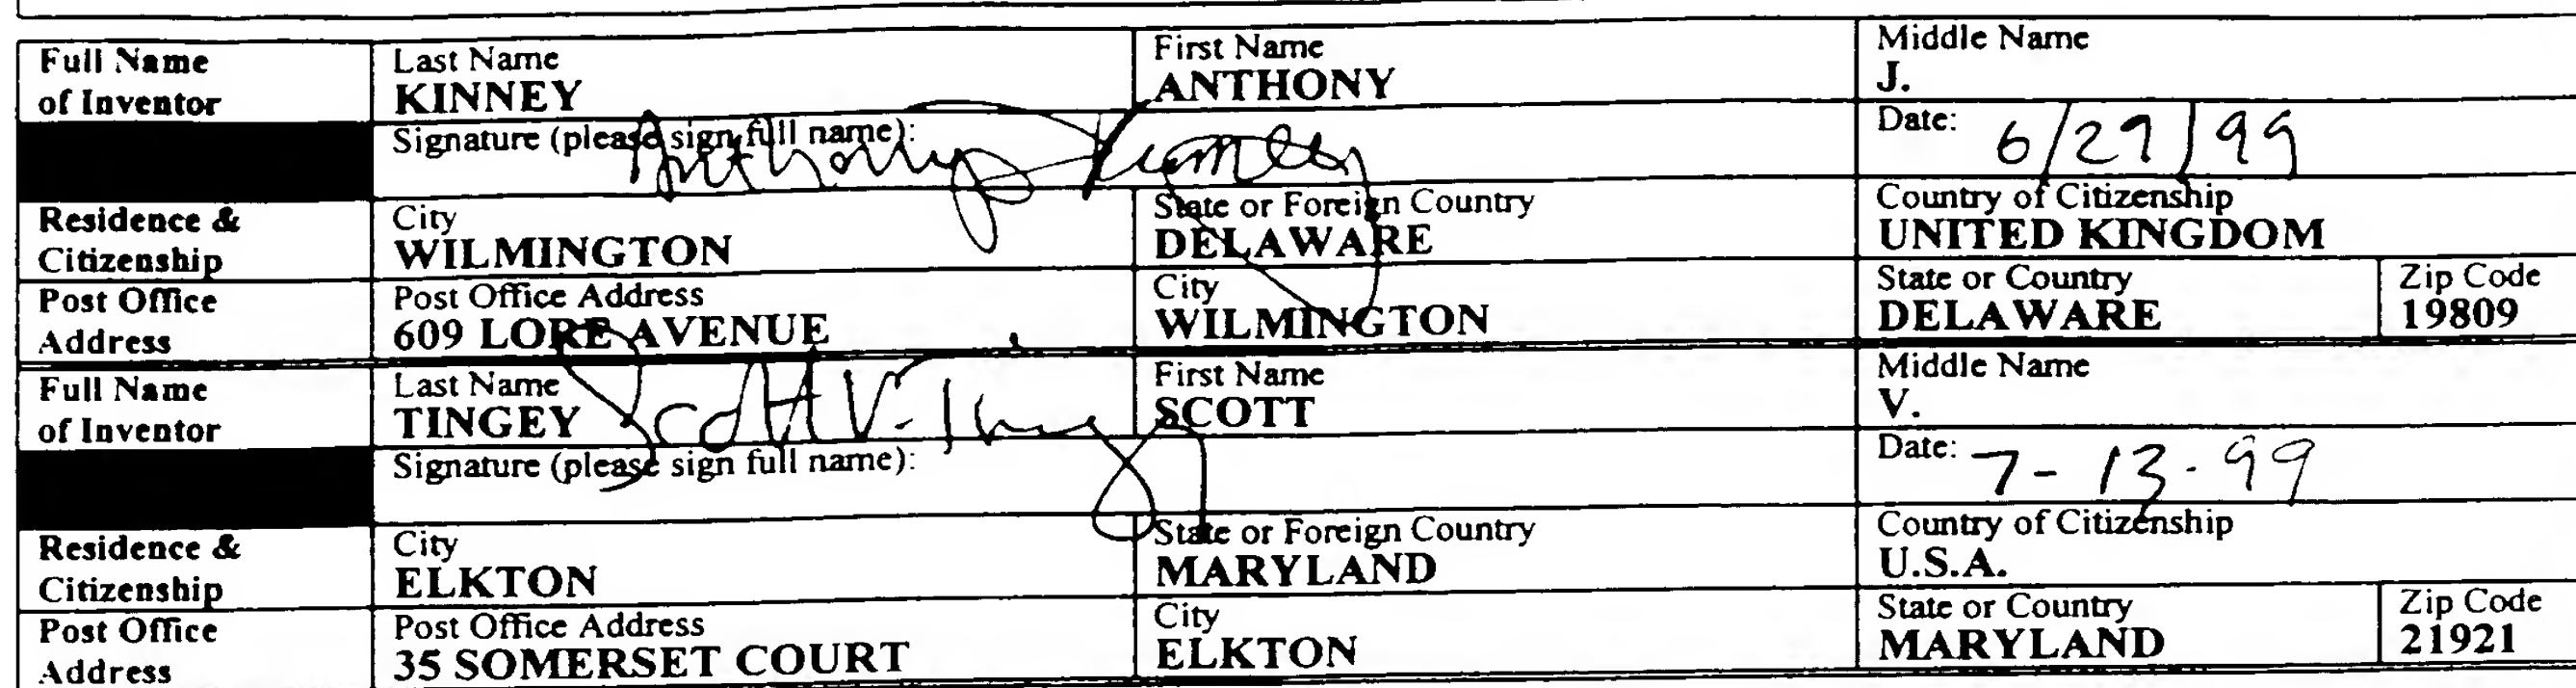 Full Name of Inventor
Last Name
KINNEY
First Name
ANTHONY
Middle Name
J.
Signature (please sign full name):
Anthony J Kinney
Date: 6/29/99
Residence & Citizenship
City
WILMINGTON
State or Foreign Country
DELAWARE
Country of Citizenship
UNITED KINGDOM
Post Office Address
Post Office Address
609 LORE AVENUE
City
WILMINGTON
State or Country
DELAWARE
Zip Code
19809
Full Name of Inventor
Last Name
TINGEY
First Name
SCOTT
Middle Name
V.
Scott V. Tingey
Signature (please sign full name):
Date: 7-13-99
Residence & Citizenship
City
ELKTON
State or Foreign Country
MARYLAND
Country of Citizenship
U.S.A.
Post Office Address
Post Office Address
35 SOMERSET COURT
City
ELKTON
State or Country
MARYLAND
Zip Code
21921